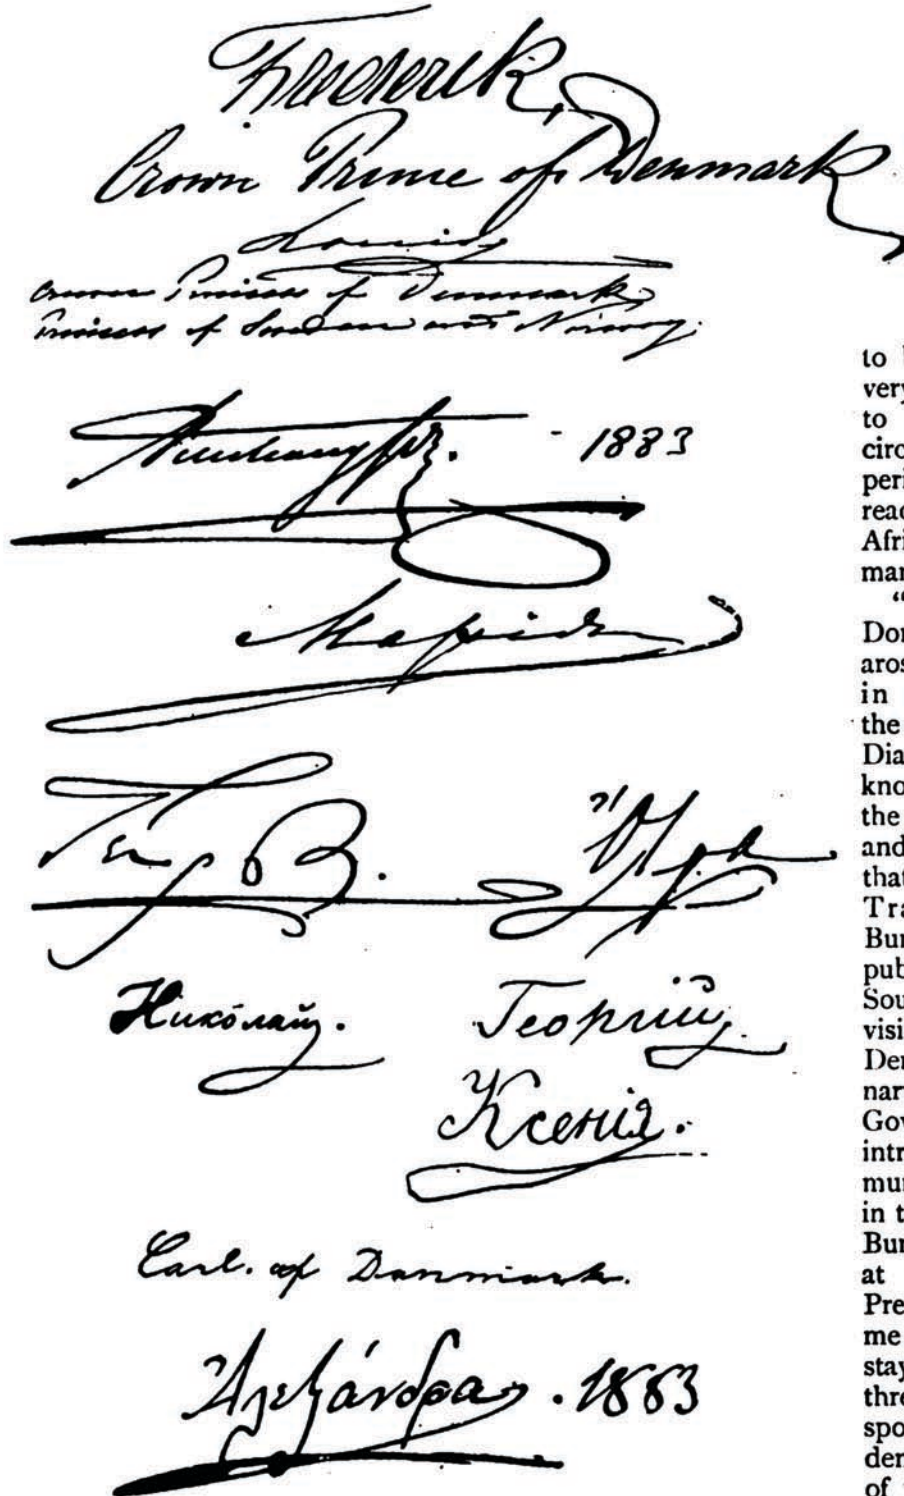 Frederick,
Crown Prince of Denmark
Louise
Crown Princess of Denmark
Princess of Sweden and Norway.
1883
Марія
Ὄλγα
Николай.
Георгій
Ксенія.
Carl. af Danmark.
Ἀλεξάνδρα. 1883
to
very
to
circ
peri
read
Afri
man
“
Dor
aros
in
the
Dia
kno
the
and
that
Tra
Bur
pub
Sou
visi
Der
nar
Gov
intr
mun
in t
Bur
at
Pre
me
stay
thre
spo
der
of